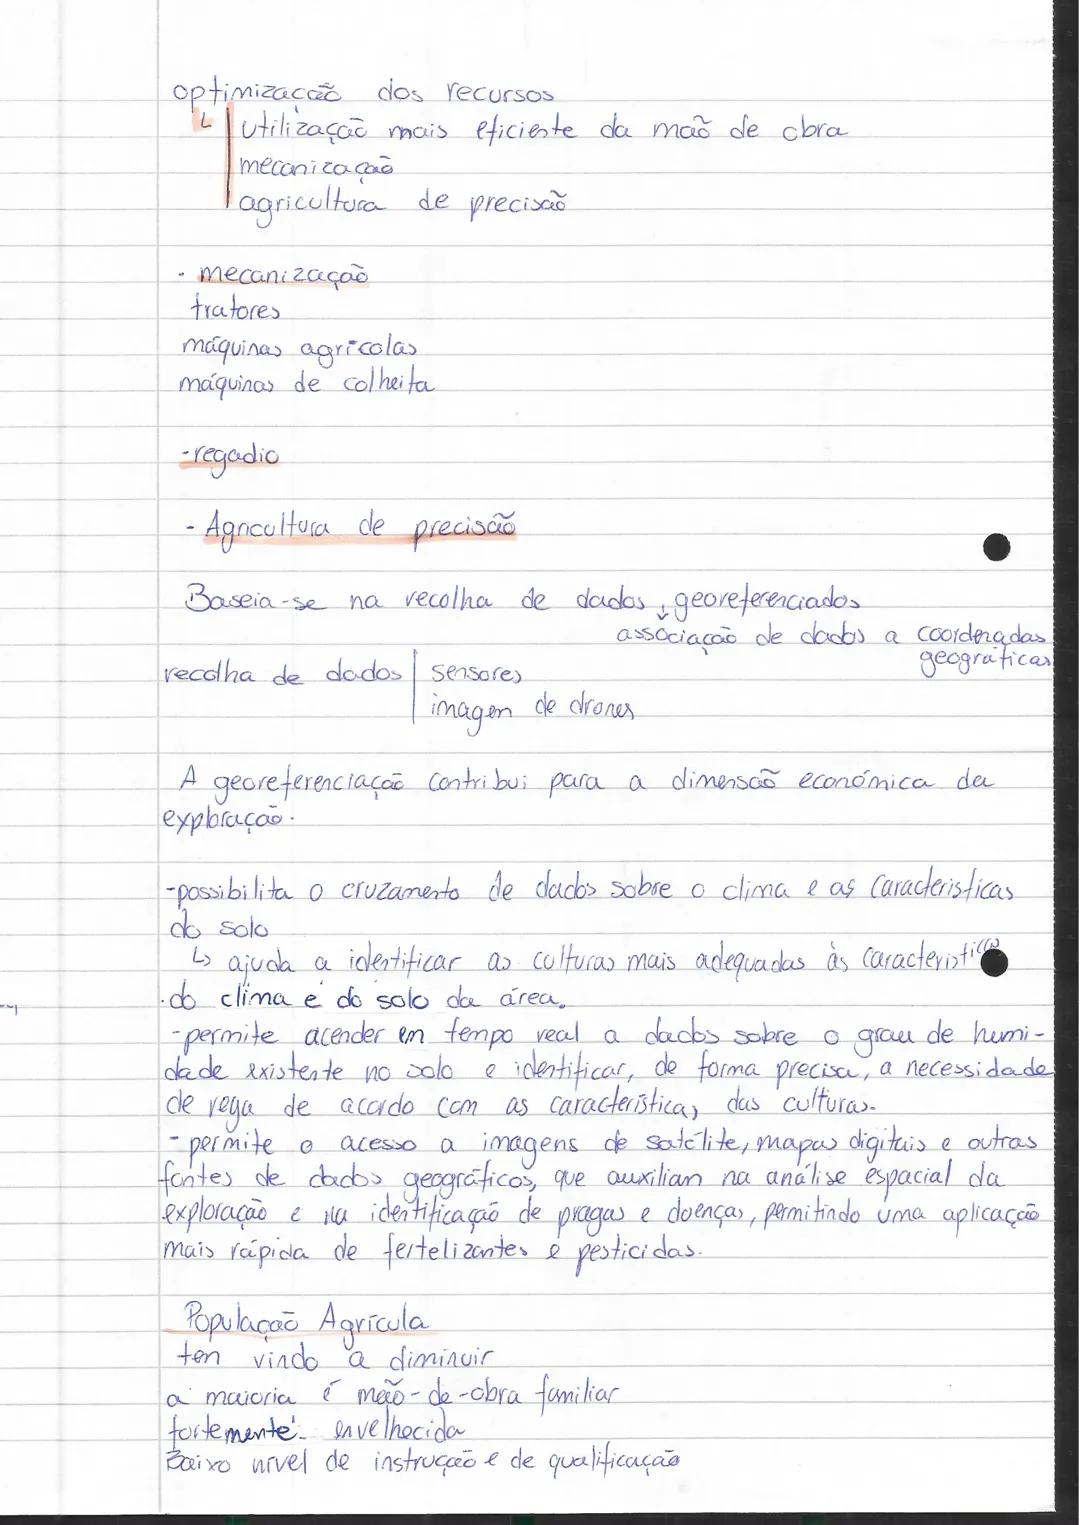 optimização dos recursos
↳ utilização mais eficiente da mão de obra
mecanização
agricultura de precisão
- mecanização
tratores
máquinas agrícolas
máquinas de colheita
- regadio
- Agricultura de precisão
Baseia-se na recolha de dados georeferenciados
↓ associação de dados a coordenadas
geográficas
recolha de dados | sensores
imagem de drones
A georeferenciação contribui para a dimensão económica da
exploração.
-possibilita o cruzamento de dados sobre o clima e as características
do solo
↳ ajuda a identificar as culturas mais adequadas às
do clima e do solo da área.
-permite acender em tempo real a dados sobre o grau de humi-
dade existente no solo e identificar, de forma precisa, a necessidade
de rega de acordo com as características das culturas.
- permite o acesso a imagens de satélite, mapas digitais e outras
fontes de dados geográficos, que auxiliam na análise espacial da
exploração e na identificação de pragas e doenças, permitindo uma aplicação
mais rápida de fertelizantes e pesticidas.
População Agrícula
tem vindo a diminuir
a maioria é mão-de-obra familiar
fortemente envelhecida
Baixo nível de instrução e de qualificação